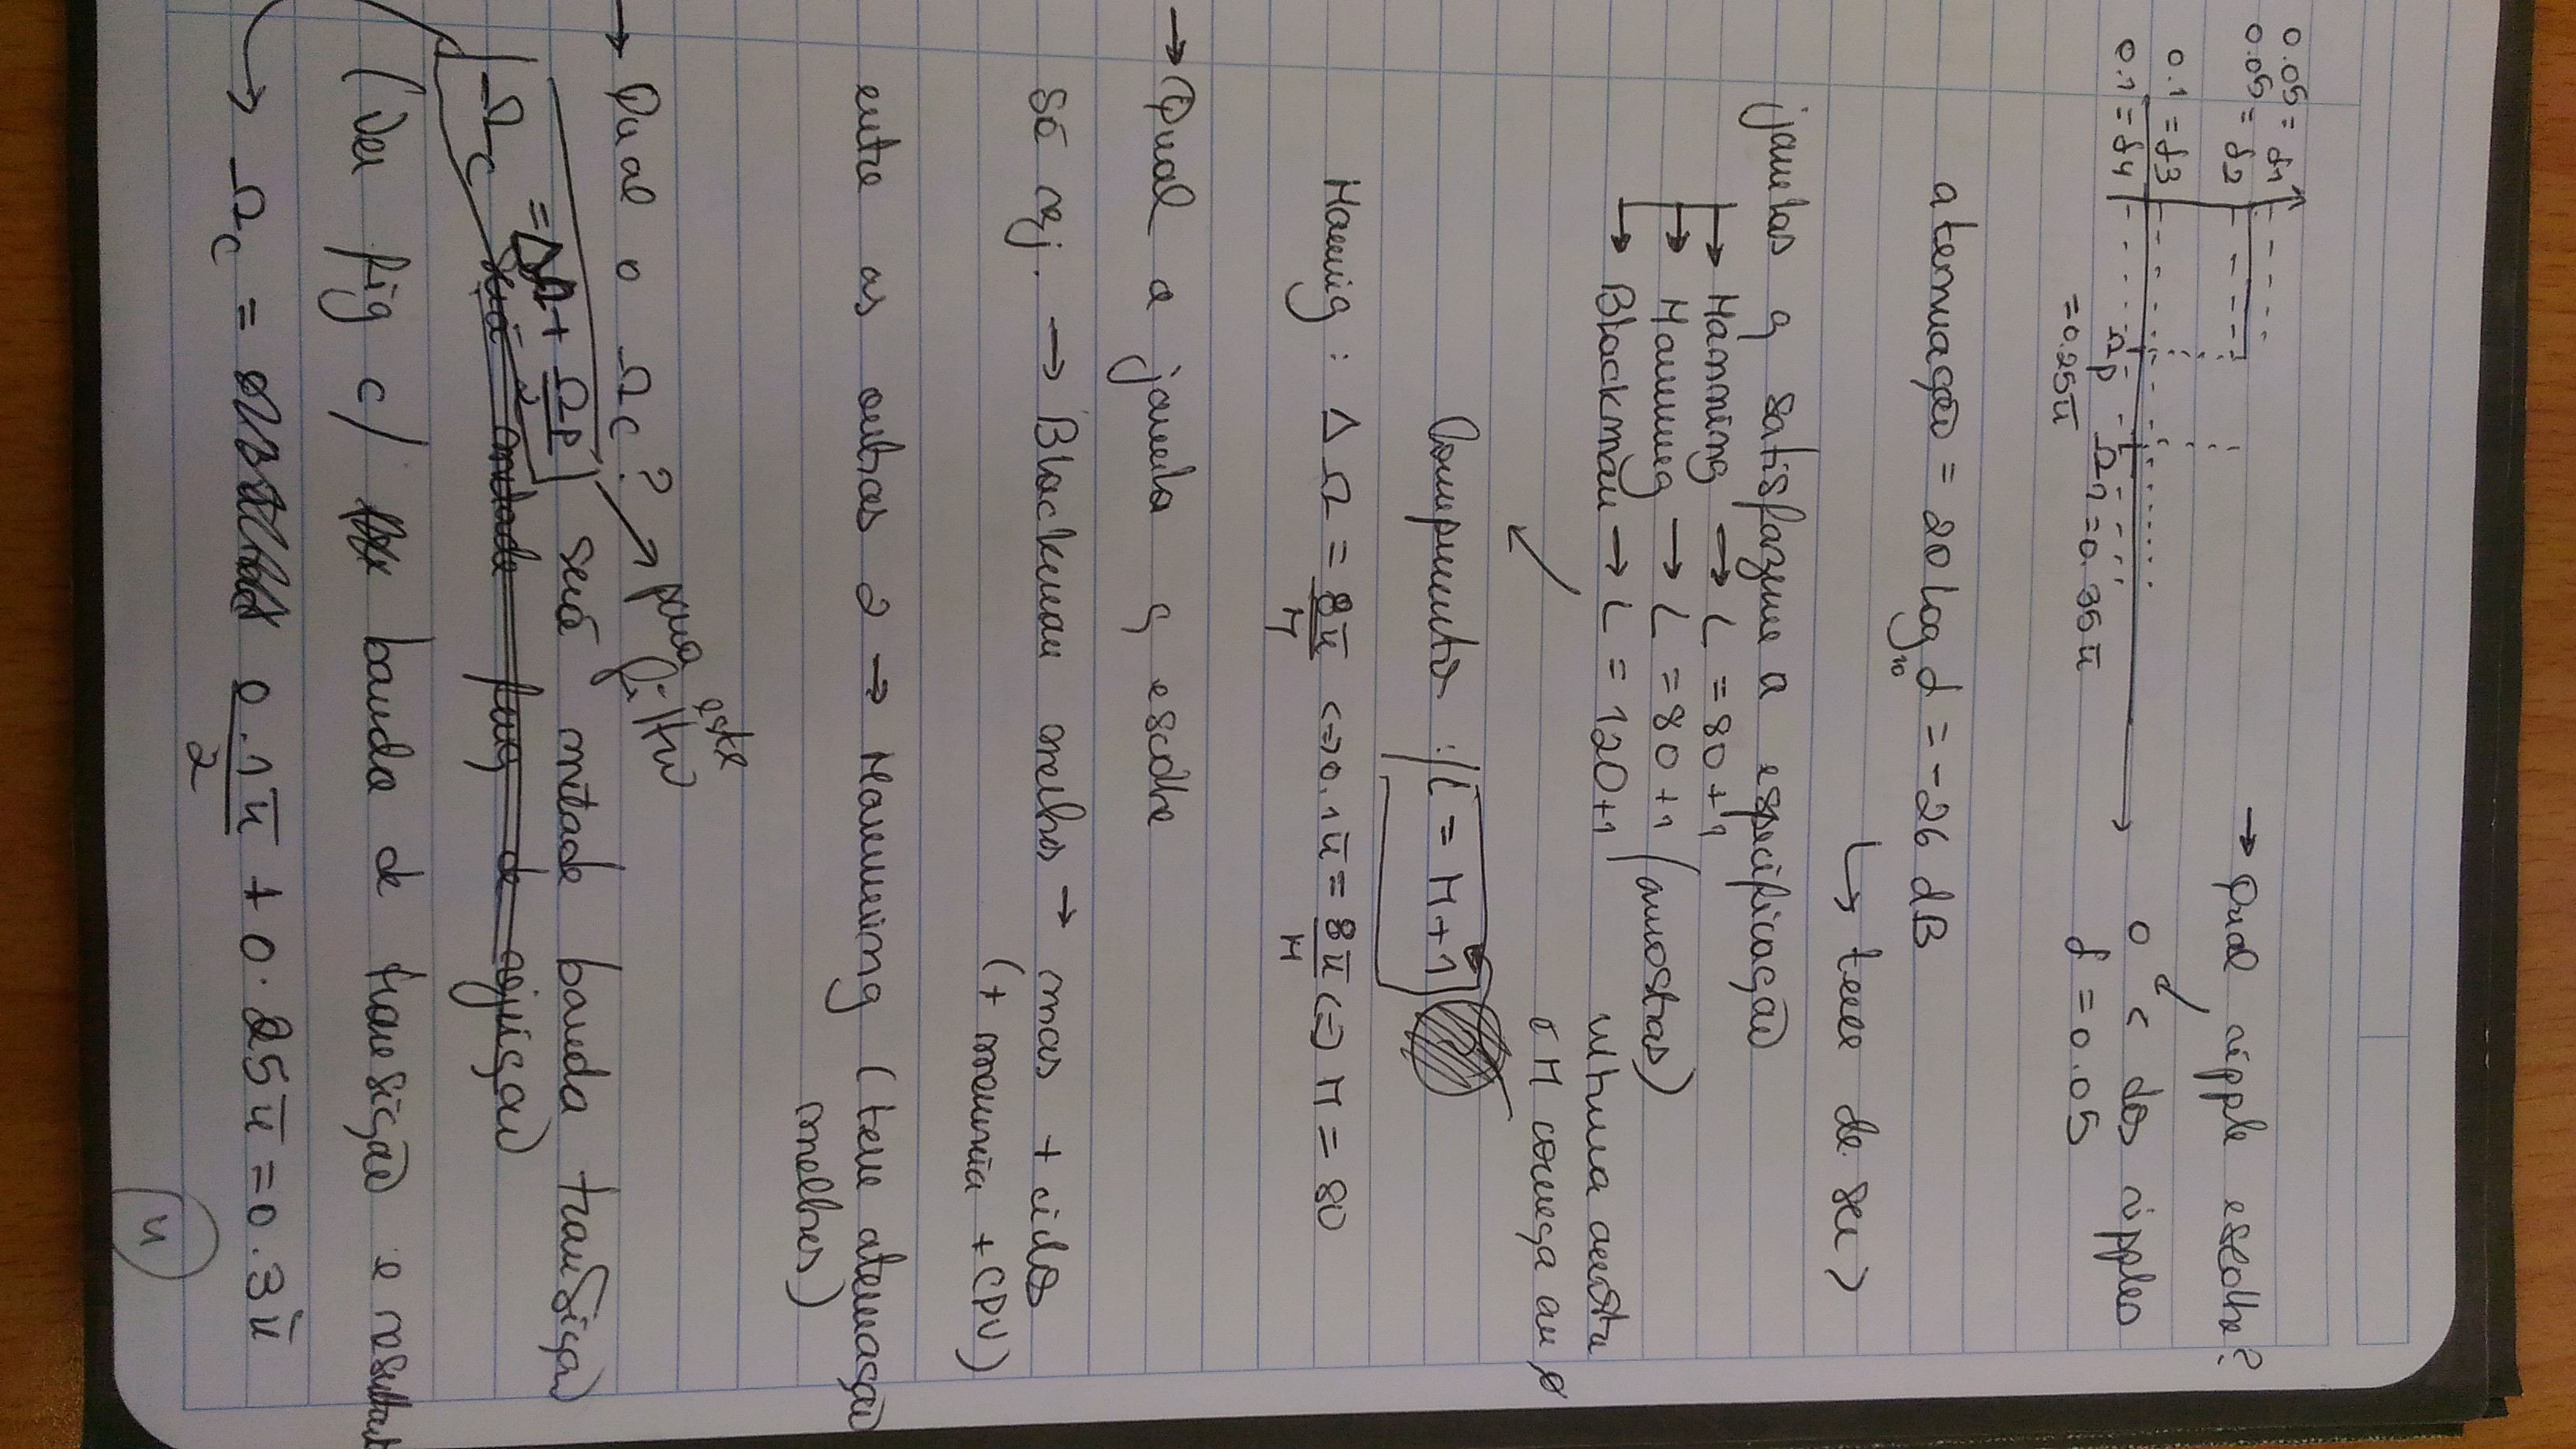 0.05 = δ1
0.05 = δ2
0.1 = δ3
0.1 = δ4
Ωp
= 0.25π
Ωs = 0.35π
→ Qual ripple escolhe?
o < dos ripples
δ = 0.05
atenuação = 20 log₁₀ δ = -26 dB
↳ tem de ser >
janelas q satisfazem a especificação
→ Hanning → L = 80+1
→ Hamming → L = 80+1 (amostras)
→ Blackman → L = 120+1
ultima amostra
é M começa em ∅
Comprimento : L = M+1
Hannig : ΔΩ = 8π/M <=> 0.1π = 8π/M <=> M = 80
→ Qual a janela q escolhe
Só rej. → Blackman melhor → mas + ciclos
(+ memória + CPU)
entre as outras 2 → Hamming (tem atenuação
melhor)
→ Qual o Ωc ?
para este
filtro
Ωc = ΔΩ + Ωp/2
será metade banda transição
será metade freq de rejeição
(Ver fig c/ banda de transição e resultant
→ Ωc = 0.1π/2 + 0.25π = 0.3π
4